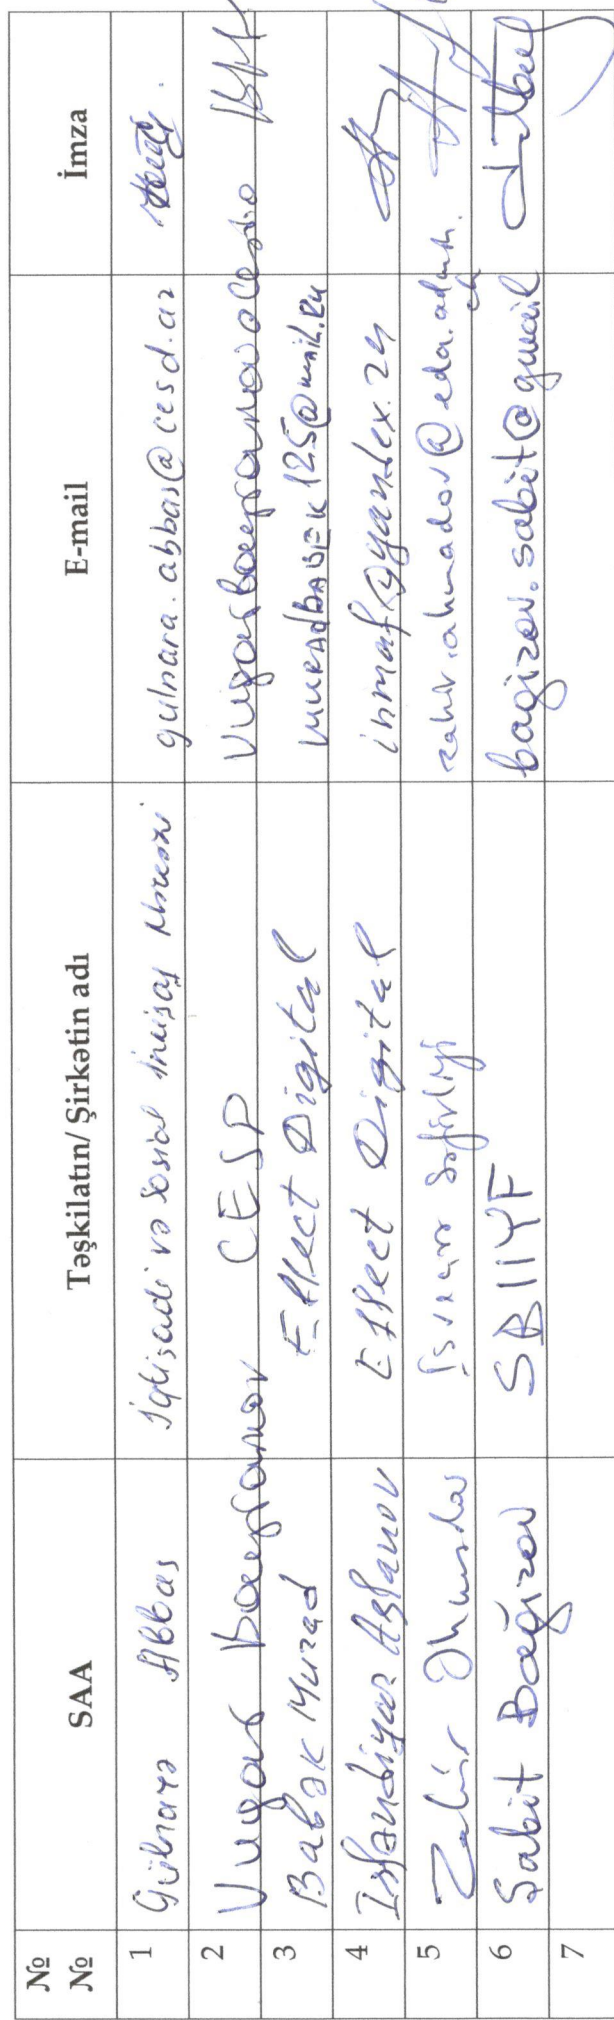 № № SAA Təşkilatın/ Şirkətin adı E-mail İmza
1 Gülnarə Abbas İqtisadi və Sosial İnkişaf Mərkəzi gulnara.abbas@cesd.az
2 Vugar Bayramov CESD
3 Babək Murad Effect Digital muradbabek125@mail.ru
4 Isfandiyar Aslanov Effect Digital
5 Zahir Əhmədov İsveçrə Səfirliyi
6 Sabit Bağirov SBIIYF bagirov.sabit@gmail
7